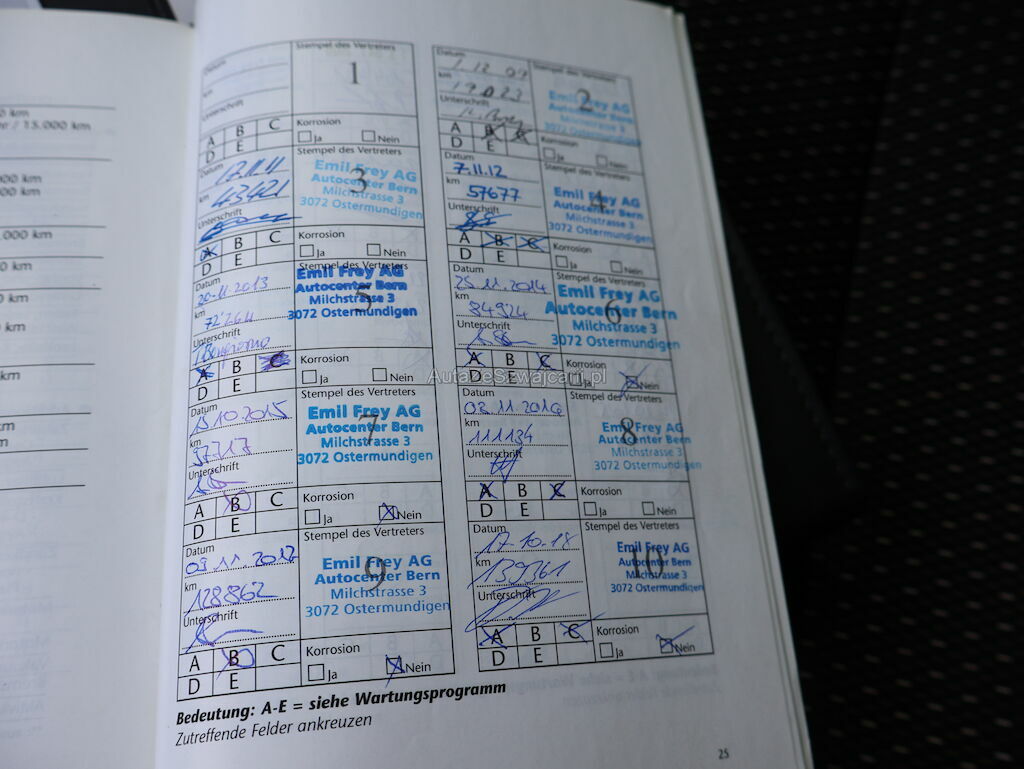 0 km
er / 15.000 km
000 km
00 km
.000 km
0 km
0 km
km
km
km
m
Datum
km
Unterschrift
Stempel des Vertreters
1
A B C
D E
Korrosion
Ja Nein
Datum
1.12.09
km
19023
Unterschrift
Stempel des Vertreters
2
Emil Frey AG
Autocenter Bern
Milchstrasse 3
3072 Ostermundigen
A B C
D E
Korrosion
Ja Nein
Datum
km
43421
Unterschrift
Stempel des Vertreters
3
Emil Frey AG
Autocenter Bern
Milchstrasse 3
3072 Ostermundigen
A B C
D E
Korrosion
Ja Nein
Datum
7.11.12
km
57677
Unterschrift
Stempel des Vertreters
4
Emil Frey AG
Autocenter Bern
Milchstrasse 3
3072 Ostermundigen
A B C
D E
Korrosion
Ja Nein
Datum
20.11.2013
km
72'264
Unterschrift
Stempel des Vertreters
5
Emil Frey AG
Autocenter Bern
Milchstrasse 3
3072 Ostermundigen
A B C
D E
Korrosion
Ja Nein
Datum
25.11.2014
km
84924
Unterschrift
Stempel des Vertreters
6
Emil Frey AG
Autocenter Bern
Milchstrasse 3
3072 Ostermundigen
A B C
D E
Korrosion
Ja Nein
Datum
15.10.2015
km
97717
Unterschrift
Stempel des Vertreters
7
Emil Frey AG
Autocenter Bern
Milchstrasse 3
3072 Ostermundigen
A B C
D E
Korrosion
Ja Nein
Datum
03.11.2016
km
111134
Unterschrift
Stempel des Vertreters
8
Emil Frey AG
Autocenter Bern
Milchstrasse 3
3072 Ostermundigen
A B C
D E
Korrosion
Ja Nein
Datum
03.11.2017
km
128862
Unterschrift
Stempel des Vertreters
9
Emil Frey AG
Autocenter Bern
Milchstrasse 3
3072 Ostermundigen
A B C
D E
Korrosion
Ja Nein
Datum
17-10-18
km
139361
Unterschrift
Stempel des Vertreters
10
Emil Frey AG
Autocenter Bern
Milchstrasse 3
3072 Ostermundigen
A B C
D E
Korrosion
Ja Nein
AutaZeSzwajcarii.pl
Bedeutung: A-E = siehe Wartungsprogramm
Zutreffende Felder ankreuzen
25